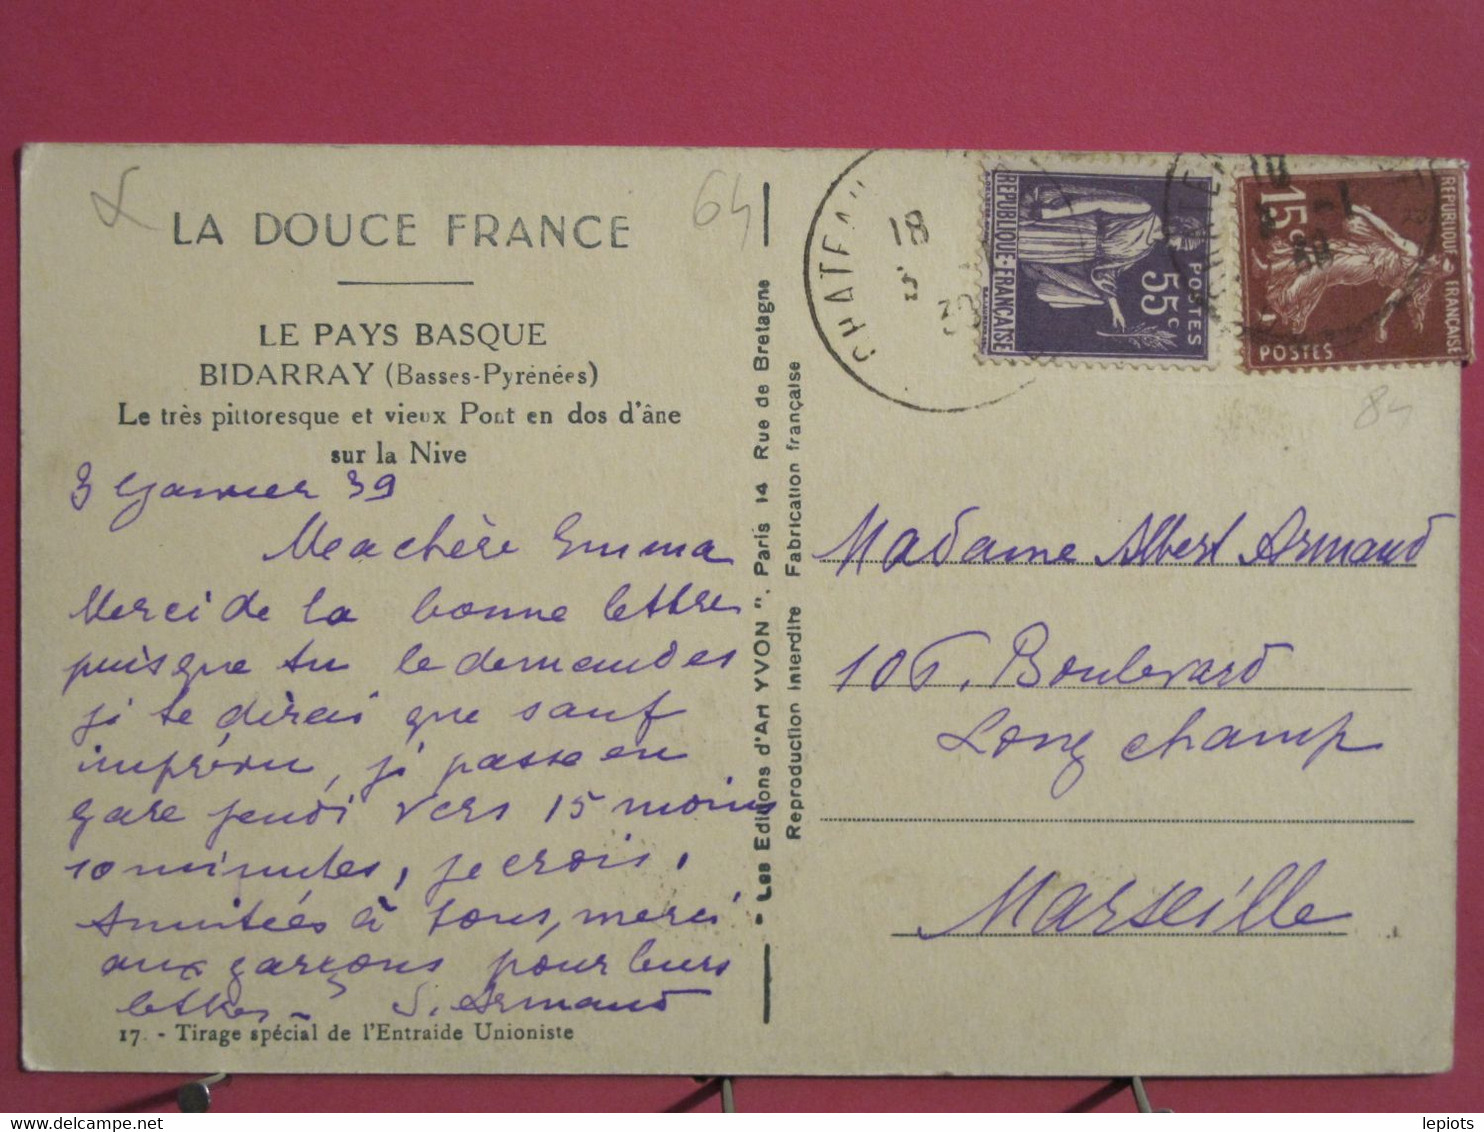 64
LA DOUCE FRANCE
LE PAYS BASQUE
BIDARRAY (Basses-Pyrénées)
Le très pittoresque et vieux Pont en dos d'âne
sur la Nive
3 Janvier 39
Ma chère Emma
Merci de la bonne lettre
puisque tu le demandes
je te dirai que sauf
imprévu, je passe en
gare jeudi vers 15 moins
10 minutes, je crois.
Amitiés à tous, merci
aux garçons pour leurs
lettres - S. Armand
17. - Tirage spécial de l'Entraide Unioniste
"Les Editions d'Art YVON". Paris 14 Rue de Bretagne
Reproduction Interdite Fabrication française
18
39
REPUBLIQUE-FRANÇAISE
55c
POSTES
REPUBLIQUE FRANÇAISE
15c
POSTES
Madame Albert Armand
106. Boulevard
Longchamp
Marseille
lepiots